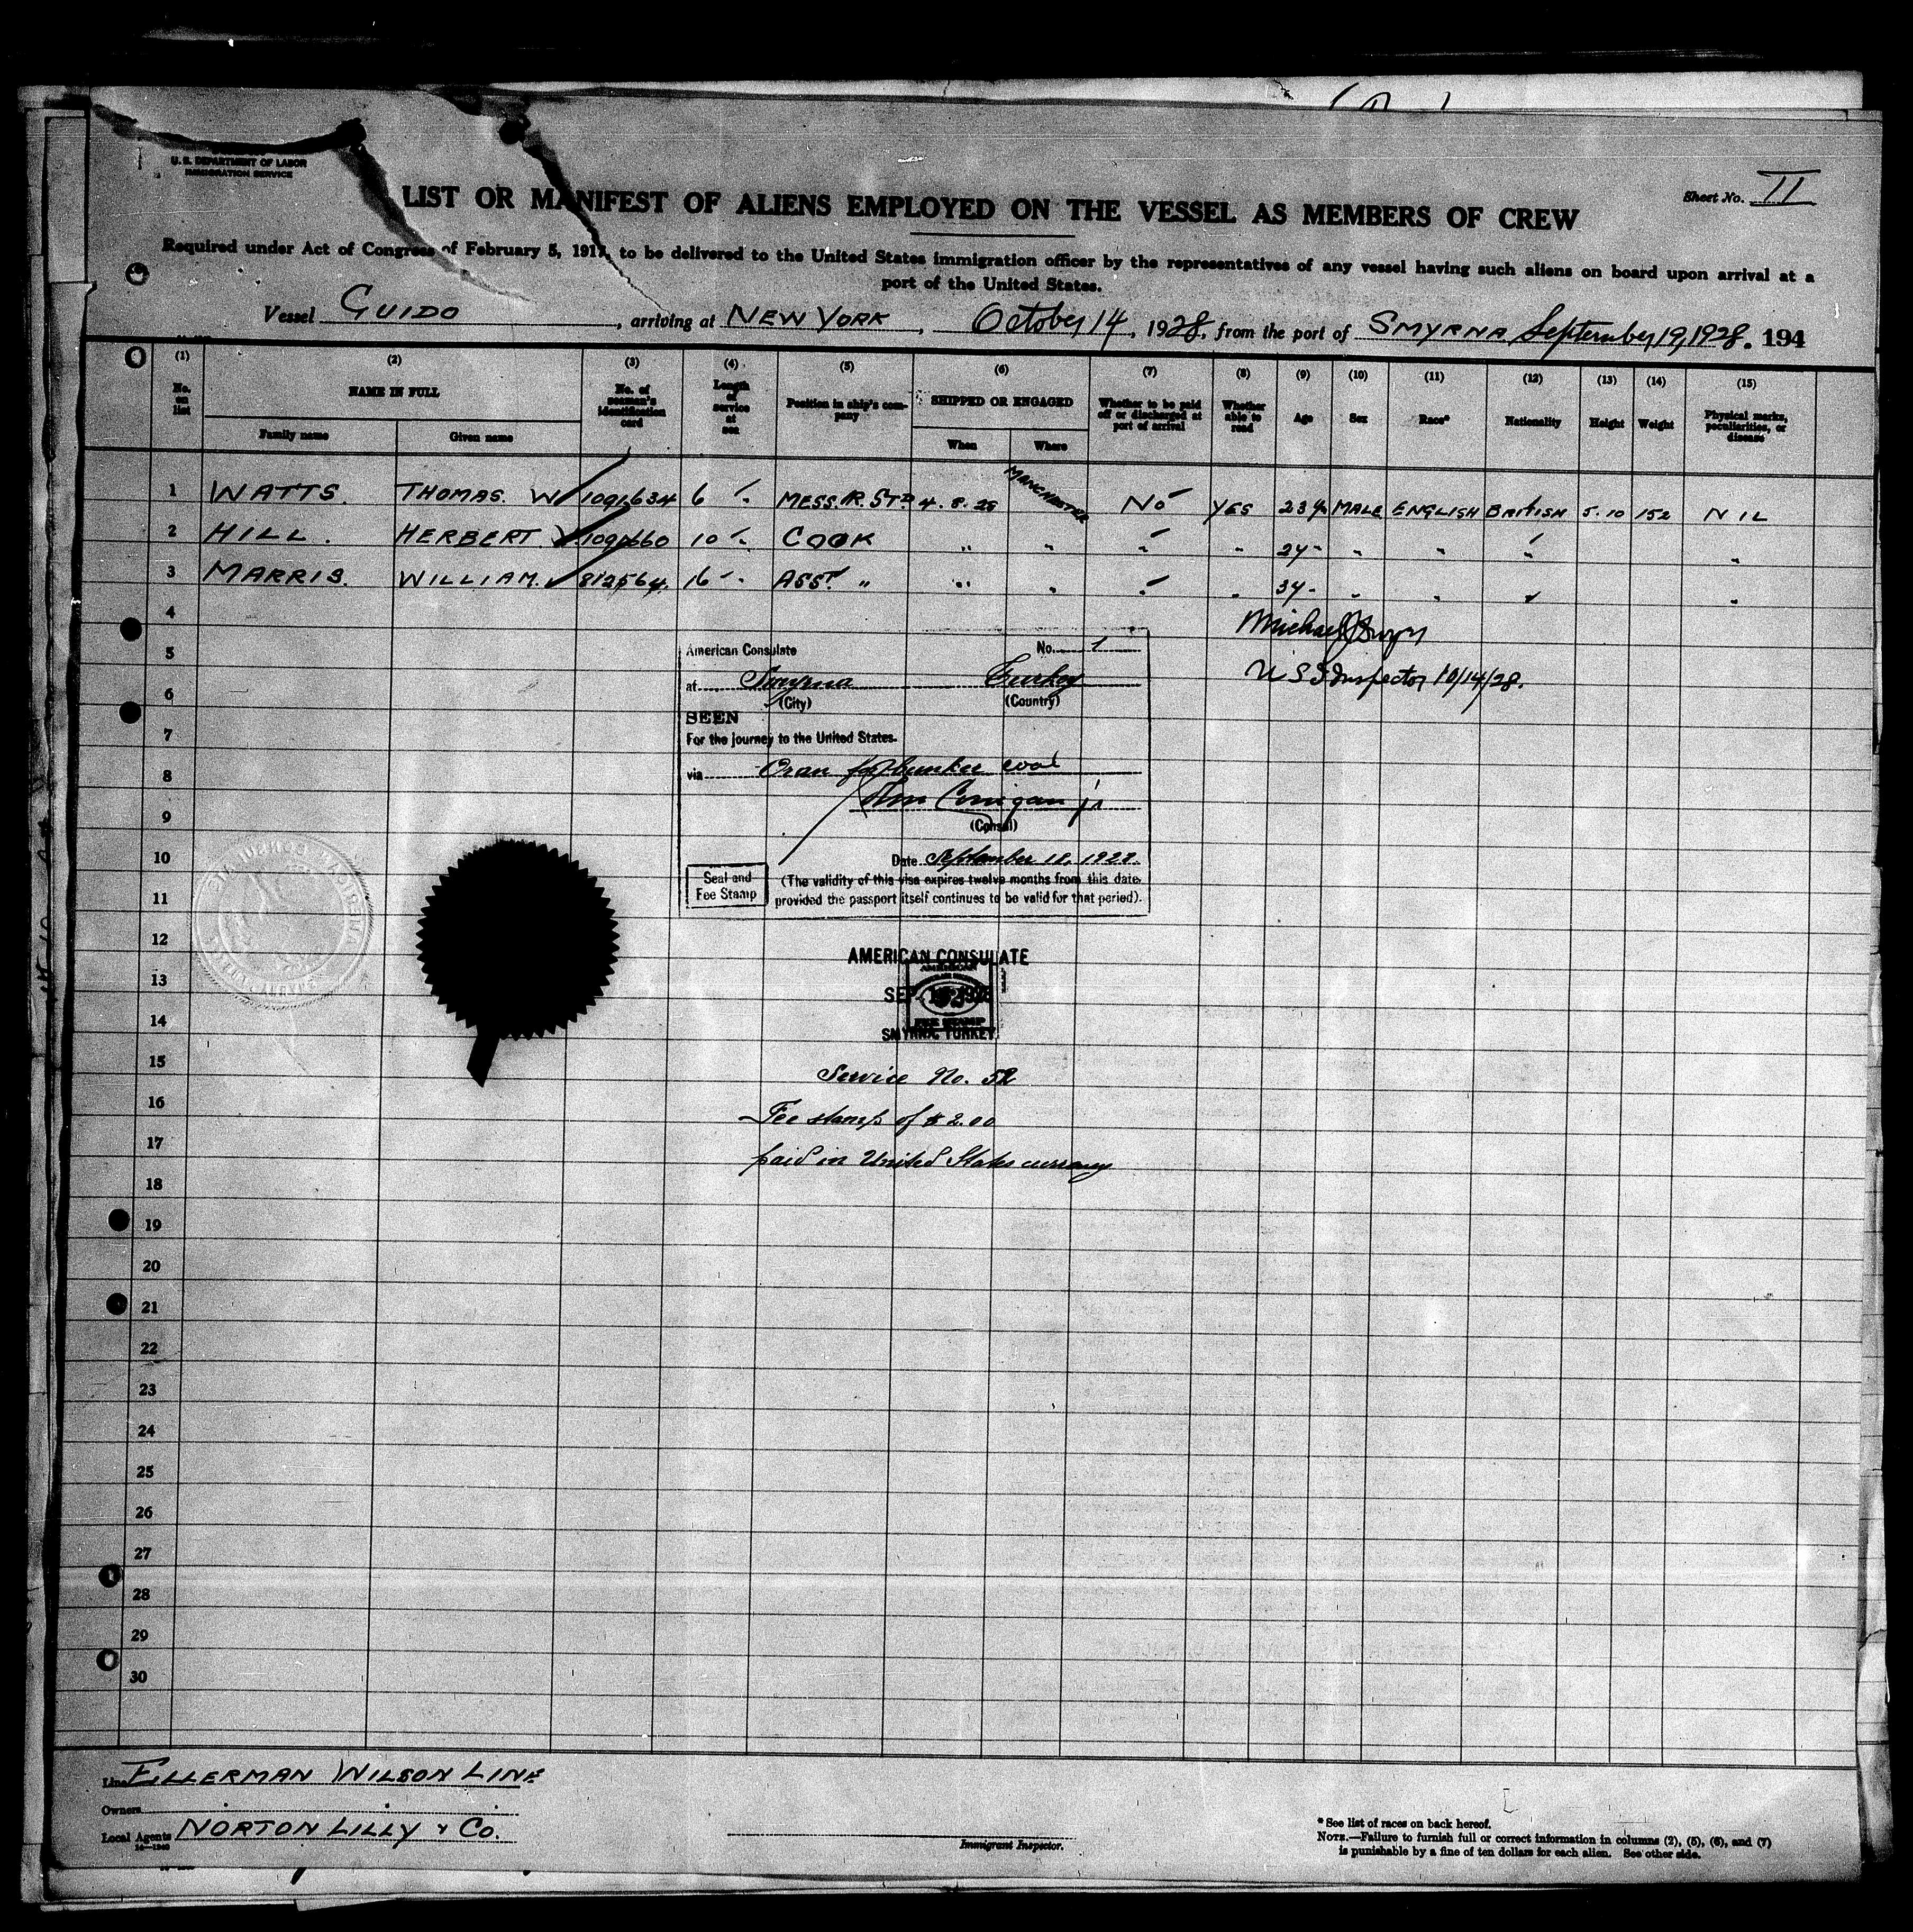 U. S. DEPARTMENT OF LABOR
IMMIGRATION SERVICE
Sheet No. II
LIST OR MANIFEST OF ALIENS EMPLOYED ON THE VESSEL AS MEMBERS OF CREW
Required under Act of Congress of February 5, 1917, to be delivered to the United States immigration officer by the representatives of any vessel having such aliens on board upon arrival at a
port of the United States.
Vessel GUIDO, arriving at NEW YORK, October 14, 1928, from the port of SMYRNA September 19, 1928. 194
(1) (2) (3) (4) (5) (6) (7) (8) (9) (10) (11) (12) (13) (14) (15)
No. on list NAME IN FULL No. of seaman's identification card Length of service at sea Position in ship's company SHIPPED OR ENGAGED Whether to be paid off or discharged at port of arrival Whether able to read Age Sex Race* Nationality Height Weight Physical marks, peculiarities, or disease
Family name Given name When Where
1 WATTS. THOMAS. W 1091634 6 MESS. R. STD. 4. 8. 28 MANCHESTER NO YES 23 MALE ENGLISH BRITISH 5.10 152 NIL
2 HILL. HERBERT 10 COOK " " " " 24 " " " "
3 MARRIS. WILLIAM. 812564 16 ASST " " " " " 34 " " " "
4
5
6
7
8
9
10
11
12
13
14
15
16
17
18
19
20
21
22
23
24
25
26
27
28
29
30
Michael
U S Inspector 10/14/28.
American Consulate No. 1
at Smyrna Turkey
(City) (Country)
SEEN
For the journey to the United States.
via Oran for bunker coal
John Corrigan jr
(Consul)
Date September 18, 1928.
Seal and
Fee Stamp
(The validity of this visa expires twelve months from this date,
provided the passport itself continues to be valid for that period).
AMERICAN CONSULATE
SEP. 1928
FEE STAMP
SMYRNA, TURKEY.
Service No. 52
Fee stamp of $2.00
paid in United States currency
Line ELLERMAN WILSON LINE
Owners " " "
Local Agents NORTON LILLY & Co.
Immigrant Inspector.
* See list of races on back hereof.
NOTE.—Failure to furnish full or correct information in columns (2), (5), (6), and (7)
is punishable by a fine of ten dollars for each alien. See other side.